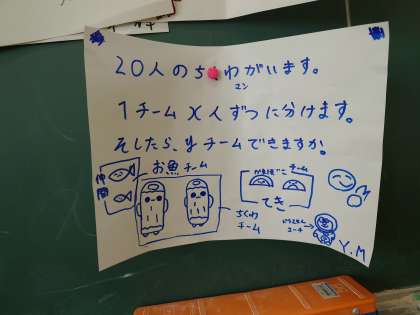 20人のちくわがいます。
マン
1チームx人ずつに分けます。
そしたら、yチームできますか。
お魚チーム
仲間
チーム
てき
ちくわ
チーム
コーチ
Y.M